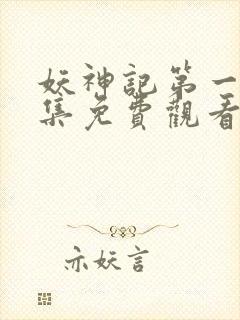 妖神記第一
集免費觀看
亦妖言